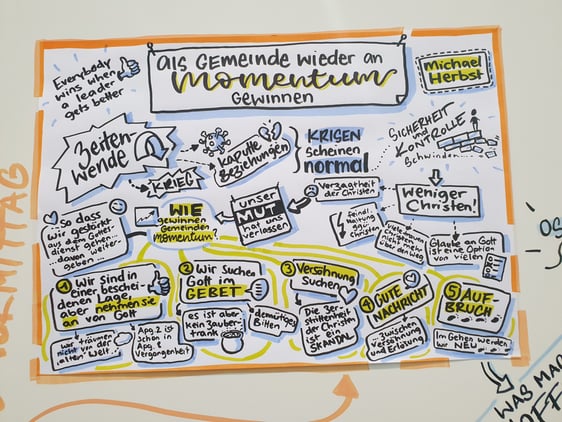 Everybody
wins when
a leader
gets better
Als Gemeinde wieder an
Momentum
gewinnen
Michael
Herbst
Zeiten-
wende
Krieg
kaputte
Beziehungen
Krisen
scheinen
normal
Sicherheit
und
Kontrolle
schwinden...
So dass
wir gestärkt
aus dem Gottes-
dienst gehen...
...davon weiter-
geben...
Wie
gewinnen
Gemeinden
Momentum?
unser
Mut
hat uns
verlassen
Verzagtheit
der Christen
weniger
Christen!
Viele
Christen
nicht mehr
über den Weg
Glaube an Gott
ist eine Option
von vielen
1 Wir sind in
einer beschei-
denen Lage,
aber nehmen sie
an von Gott
wir träumen
nicht von der
"alten" Welt...
Apg. 2 ist
schon in
Apg. 8
Vergangenheit
2 Wir suchen
Gott im
Gebet
es ist aber
kein Zauber-
trank
demütiges
Bitten
3 Versöhnung
suchen
Die Zer-
strittenheit
der Christen
ist ein
Skandal
4 Gute
Nachricht
...zwischen
Versöhnung
und Erlösung
5 Auf-
bruch
Im Gehen werden
wir neu...
Vormittag
Was